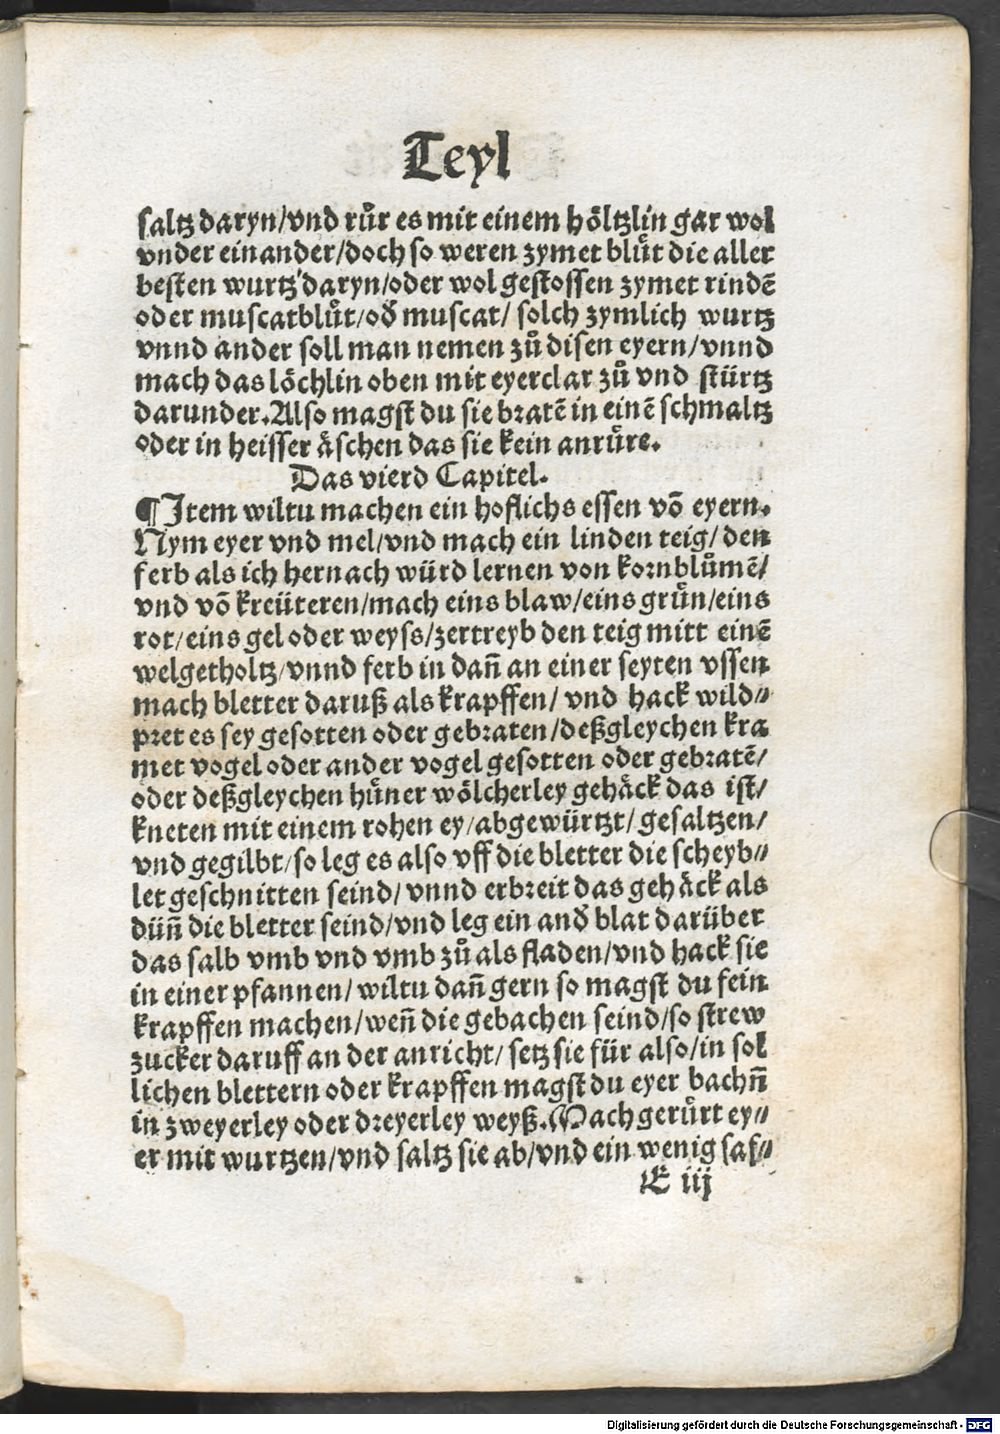 Teyl
saltz daryn/vnd růr es mit einem höltzlin gar wol
vnder einander/doch so weren zymet blůt die aller
besten wurtz daryn/oder wol gestossen zymet rindē
oder muscatblůt/oď muscat/ solch zymlich wurtz
vnnd ander soll man nemen zů disen eyern/vnnd
mach das löchlin oben mit eyerclar zů vnd stürtz
darunder. Also magst du sie bratē in einē schmaltz
oder in heisser äschen das sie kein anrůre.
Das vierd Capitel.
¶ Item wiltu machen ein hoflichs essen vō eyern.
Nym eyer vnd mel/vnd mach ein linden teig/ den
ferb als ich hernach würd lernen von kornblůmē/
vnd vō kreüteren/mach eins blaw/eins grůn/eins
rot/eins gel oder weyss/zertreyb den teig mitt einē
welgetholtz/vnnd ferb in dañ an einer seyten vssen
mach bletter daruß als krapffen/ vnd hack wild⸗
pret es sey gesotten oder gebraten/deßgleychen kra
met vogel oder ander vogel gesotten oder gebratē/
oder deßgleychen hůner wölcherley gehäck das ist/
kneten mit einem rohen ey/abgewürtzt/gesaltzen/
vnd gegilbt/so leg es also vff die bletter die scheyb⸗
let geschnitten seind/ vnnd erbreit das gehäck als
düñ die bletter seind/vnd leg ein anď blat darüber
das salb vmb vnd vmb zů als fladen/vnd hack sie
in einer pfannen/wiltu dañ gern so magst du fein
krapffen machen/weñ die gebachen seind/so strew
zucker daruff an der anricht/ setz sie für also/in sol
lichen blettern oder krapffen magst du eyer bachñ
in zweyerley oder dreyerley weyß. Mach gerůrt ey⸗
er mit wurtzen/vnd saltz sie ab/vnd ein wenig saf⸗
E iij
Digitalisierung gefördert durch die Deutsche Forschungsgemeinschaft - DFG